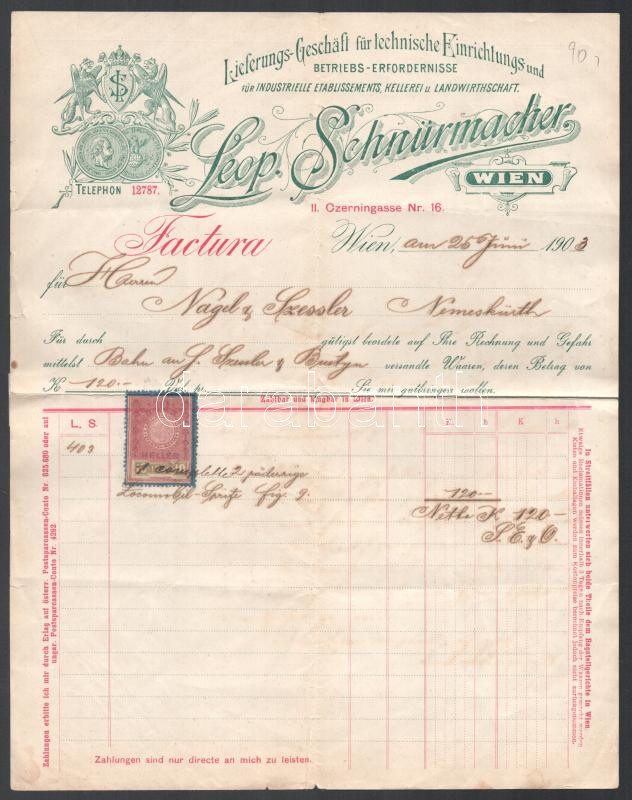 90,
Lieferungs-Geschäft für technische Einrichtungs- und
BETRIEBS-ERFORDERNISSE
FÜR INDUSTRIELLE ETABLISSEMENTS, KELLEREI u. LANDWIRTHSCHAFT.
Leop. Schnürmacher
WIEN
TELEPHON 12787.
II. Czerningasse Nr. 16.
Factura
Wien, am 25 Juni 1903
für Herren
Nagel & Szessler Nemeskürth
Für durch gütigst beordete auf Ihre Rechnung und Gefahr
mittelst Bahn an J. Szessler & versandte Waaren, deren Betrag von
K 120.- Val. pr. Sie mir gutbringen wollen.
Zahlbar und klagbar in Wien.
darabanth
L. S.
K h K h
403
HELLER
1 2 räderige
Locomobil-Spritze fig 9. 120.-
Netto K 120.-
S. E. & O.
Zahlungen erbitte ich mir durch Erlag auf österr. Postsparcassen-Conto Nr. 825.620 oder auf
ungar. Postsparcassen-Conto Nr. 4292
In Streitfällen unterwerfen sich beide Theile dem Bagatellgerichte in Wien
Etwaige Reclamationen müssen innerhalb 3 Tagen nach Empfang der Waaren gemacht werden
Kisten und Emballagen werden zum Kostenpreise berechnet jedoch nicht zurückgenommen.
Zahlungen sind nur directe an mich zu leisten.